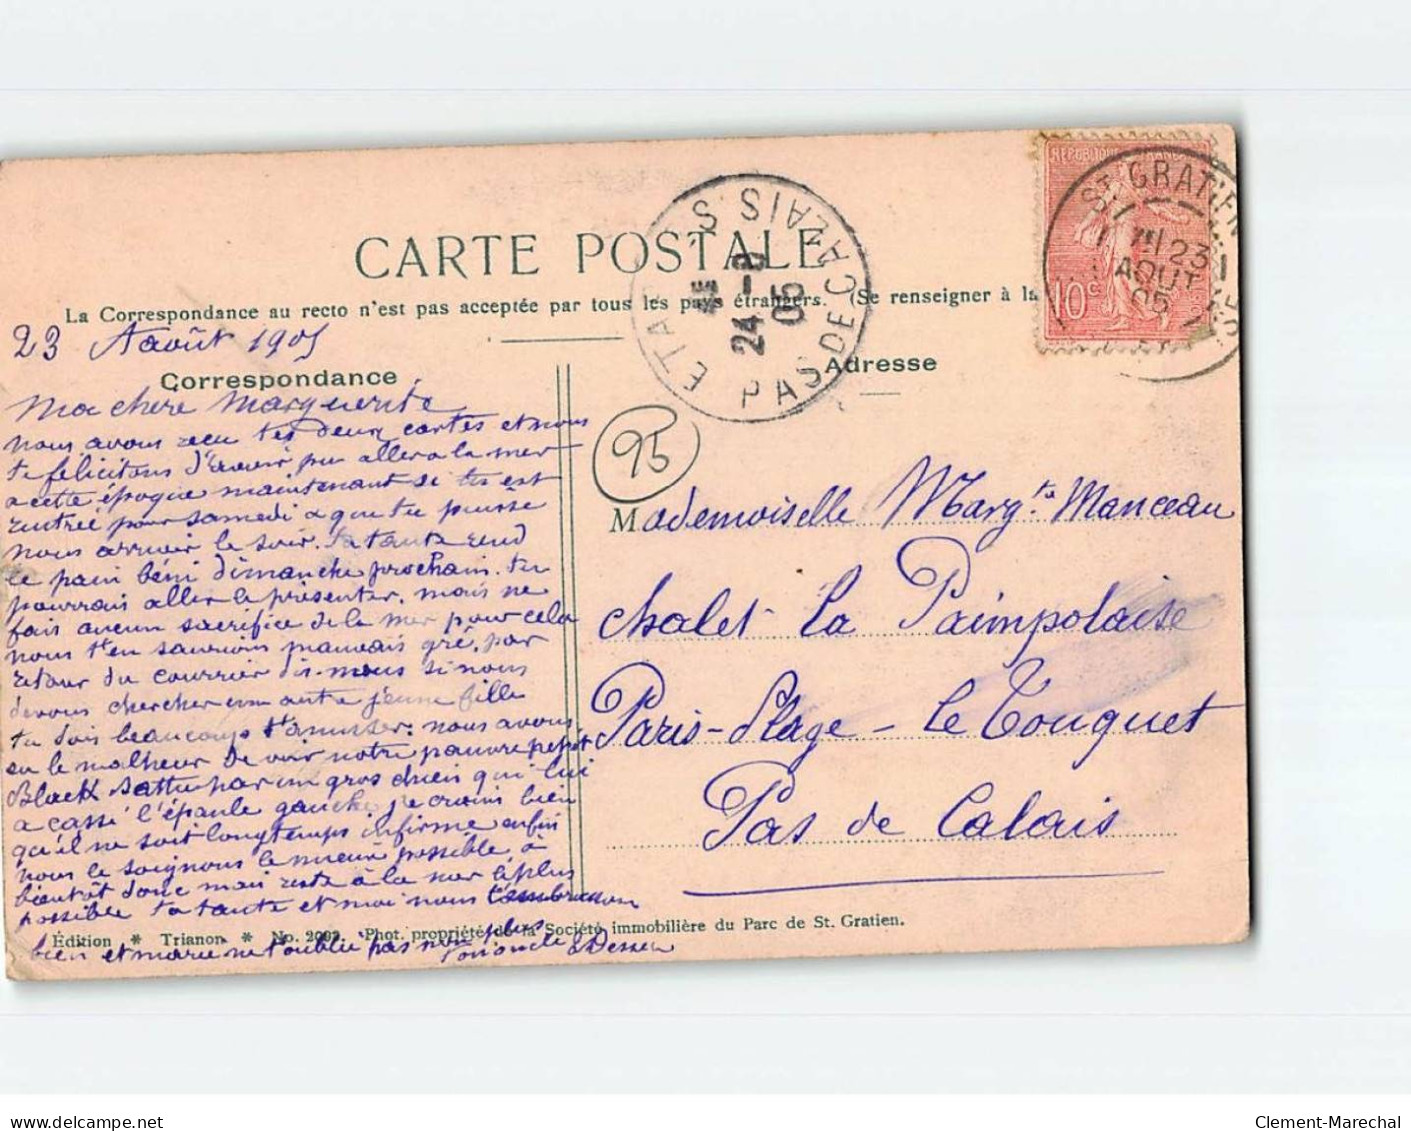 CARTE POSTALE
La Correspondance au recto n'est pas acceptée par tous les pays étrangers. (Se renseigner à la
REPUBLIQUE FRANCAISE
10c
ST GRATIEN
23
AOUT
05
ETAPLES
PAS DE CALAIS
24 -8
05
23 Aaoût 1905
Correspondance
Adresse
95
Ma chère Marguerite
nous avons recu tes deux cartes et nous
te felicitons d'avoir pu aller a la mer
a cette époque maintenant si tu est
rentrée pour samedi a que tu puisse
nous arriver le soir. ta tante rend
le pain béni dimanche prochain. tu
pourrais aller le présenter. mais ne
fais aucun sacrifice de la mer pour cela
nous t'en saurions mauvais gré. par
retour du courrier dis-nous si nous
devons chercher une autre jeune fille
tu dois beaucoup t'amuser. nous avons
eu le malheur de voir notre pauvre petit
Black battu par un gros chien qui lui
a cassé l'épaule gauche, je crains bien
qu'il ne soit longtemps infirme enfin
nous le soignons le mieux possible. à
bientôt donc mais reste à la mer le plus
possible ta tante et moi nous t'embrassons
bien et marie ne t'oublie pas non plus
ton oncle
Mademoiselle Margte Manceau
chalet la Paimpolaise
Paris-Plage - le Touquet
Pas de Calais
Édition * Trianon * No. 2002. Phot. propriété de la Société immobilière du Parc de St. Gratien.
delcampe.net
Clement-Marechal